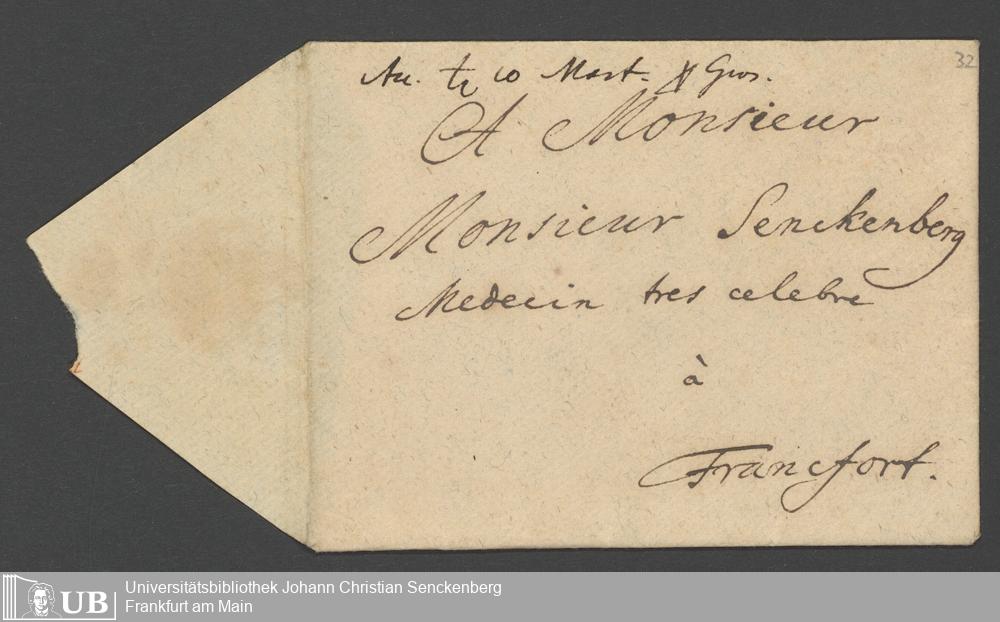 10 Mart.
32
A Monsieur
Monsieur Senckenberg
Medecin tres celebre
à
Francfort.
UB
Universitätsbibliothek Johann Christian Senckenberg
Frankfurt am Main